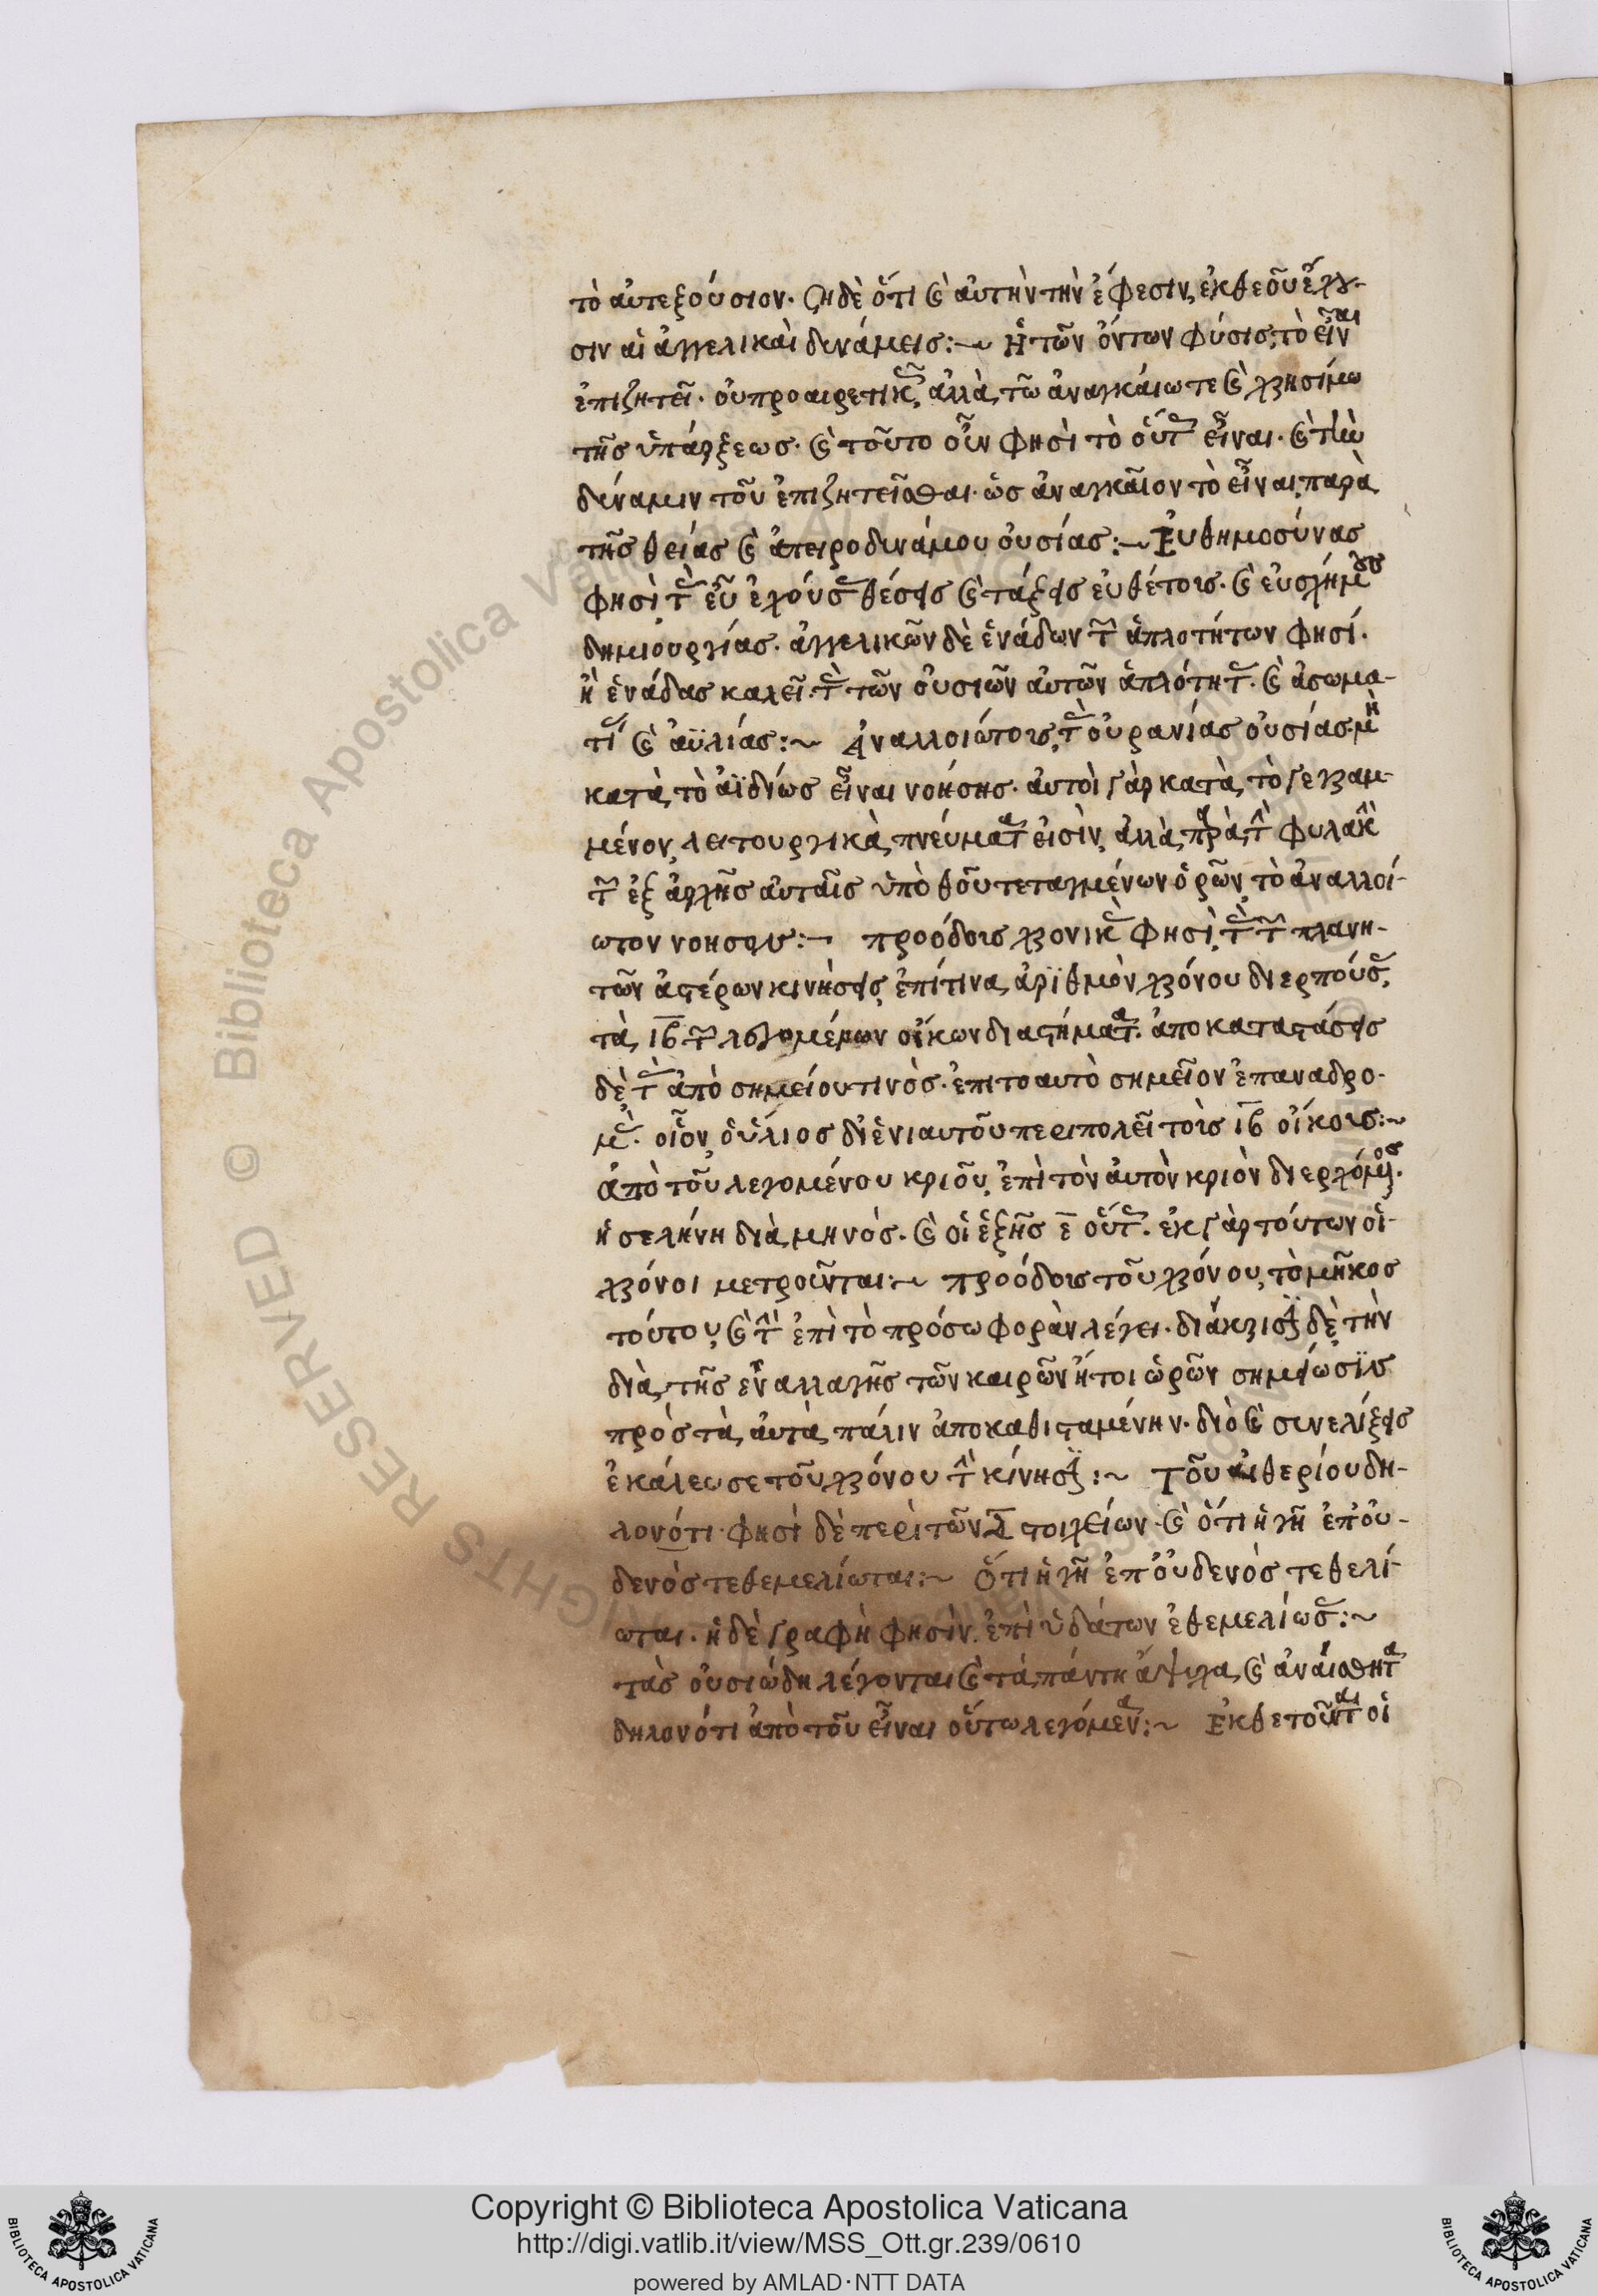 τὸ αὐτεξούσιον. ση δὲ ὅτι καὶ αὐτὴν τὴν ἔφεσιν, ἐκ θεοῦ ἔχου-
σιν αἱ ἀγγελικαὶ δυνάμεις:~ Ἡ τῶν ὄντων φύσις, τὸ εἶναι
ἐπιζητεῖ. οὐ προαιρετικῶς, ἀλλὰ τῶ ἀναγκαίω τε καὶ χρησίμω
τῆς ὑπάρξεως. καὶ τοῦτο οὖν φησὶ τὸ οὕτως εἶναι. καὶ τὴν
δύναμιν τοῦ ἐπιζητεῖσθαι. ὡς ἀναγκαῖον τὸ εἶναι, παρὰ
τῆς θείας καὶ ἀπειροδυνάμου οὐσίας:~ Εὐθημοσύνας
φησὶ, τὰς εὖ ἐχούσας θέσεις καὶ τάξεις εὐθέτοις. καὶ εὐσχήμους
δημιουργίας. ἀγγελικῶν δὲ ἑνάδων τῶν ἁπλοτήτων φησί.
ἢ ἑνάδας καλεῖ. τὰς τῶν οὐσιῶν αὐτῶν ἁπλότητας. καὶ ἀσωμα-
τίας καὶ ἀϋλίας:~ Ἀναλλοιώτοις, τὰς οὐρανίας οὐσίας. μὴ
κατὰ τὸ ἀϊδίως εἶναι νοήσης. αὐτοὶ γὰρ κατὰ τὸ γεγραμ-
μένον, λειτουργικὰ πνεύματα εἰσὶν, ἀλλὰ παρὰ τὴν φυλακὴν
τῶν ἐξ ἀρχῆς αὐταῖς ὑπὸ θεοῦ τεταγμένων ὁρῶν, τὸ ἀναλλοί-
ωτον νοήσεις:~ προόδοις χρονικὰς φησὶ, τὰς τῶν πλανη-
τῶν ἀστέρων κινήσεις, ἐπί τινα ἀριθμὸν χρόνου διερπούσας,
τὰ ιβ τῶν λεγομένων οἴκων διαστήματα. ἀποκαταστάσεις
δὲ, τὰς ἀπὸ σημείου τινὸς. ἐπι το αυτὸ σημεῖον ἐπαναδρο-
μάς. οἷον, ὁ ἥλιος δι ἐνιαυτοῦ περιπολεῖ τοὶς ιβ οἴκοις:~
ἀπὸ τοῦ λεγομένου κριοῦ, ἐπὶ τὸν αὐτὸν κριὸν διερχόμενος.
ἡ σελήνη διὰ μηνός. καὶ οἱ ἑξῆς ε οὕτως. ἐκ γὰρ τούτων οἱ
χρόνοι μετροῦνται:~ προόδοις τοῦ χρόνου, τὸ μῆκος
τούτου, καὶ τὴν ἐπὶ τὸ πρόσω φορὰν λέγει. διάκρισιν δὲ, τὴν
διὰ τῆς ἐναλλαγῆς τῶν καιρῶν ἤτοι ὡρῶν σημείωσιν
πρὸς τὰ αὐτὰ πάλιν ἀποκαθισταμένην. διὸ καὶ συνελίξεις
ἐκάλευσε τοῦ χρόνου τὴν κίνησιν:~ Τοῦ αἰθερίου δη-
λονότι. φησὶ δὲ περὶ τῶν δ στοιχείων. καὶ ὅτι ἡ γῆ ἐπ οὐ-
δενὸς τεθεμελίωται:~ Ὅτι ἡ γῆ ἐπ οὐδενὸς τεθελί-
ωται. ἡ δὲ γραφὴ φησὶν. ἐπὶ ὑδάτων ἐθεμελίωσας:~
τὰς οὐσιώδη λέγονται καὶ τὰ πάντη ἄψυχα, καὶ ἀναίσθητα
δηλονότι ἀπὸ τοῦ εἶναι οὕτω λεγόμενα:~ Ἐκθετοῦνται οἱ
Copyright © Biblioteca Apostolica Vaticana
http://digi.vatlib.it/view/MSS_Ott.gr.239/0610
powered by AMLAD·NTT DATA